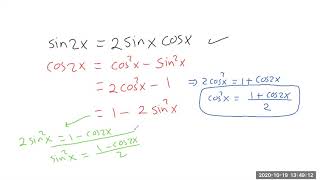 sin2x = 2sinx cosx ✓
cos2x = cos²x - sin²x
= 2cos²x - 1
= 1 - 2sin²x
⇒ 2cos²x = 1 + cos2x
cos²x = (1 + cos2x)/2
2sin²x = 1 - cos2x
sin²x = (1 - cos2x)/2
2020-10-19 13:49:12